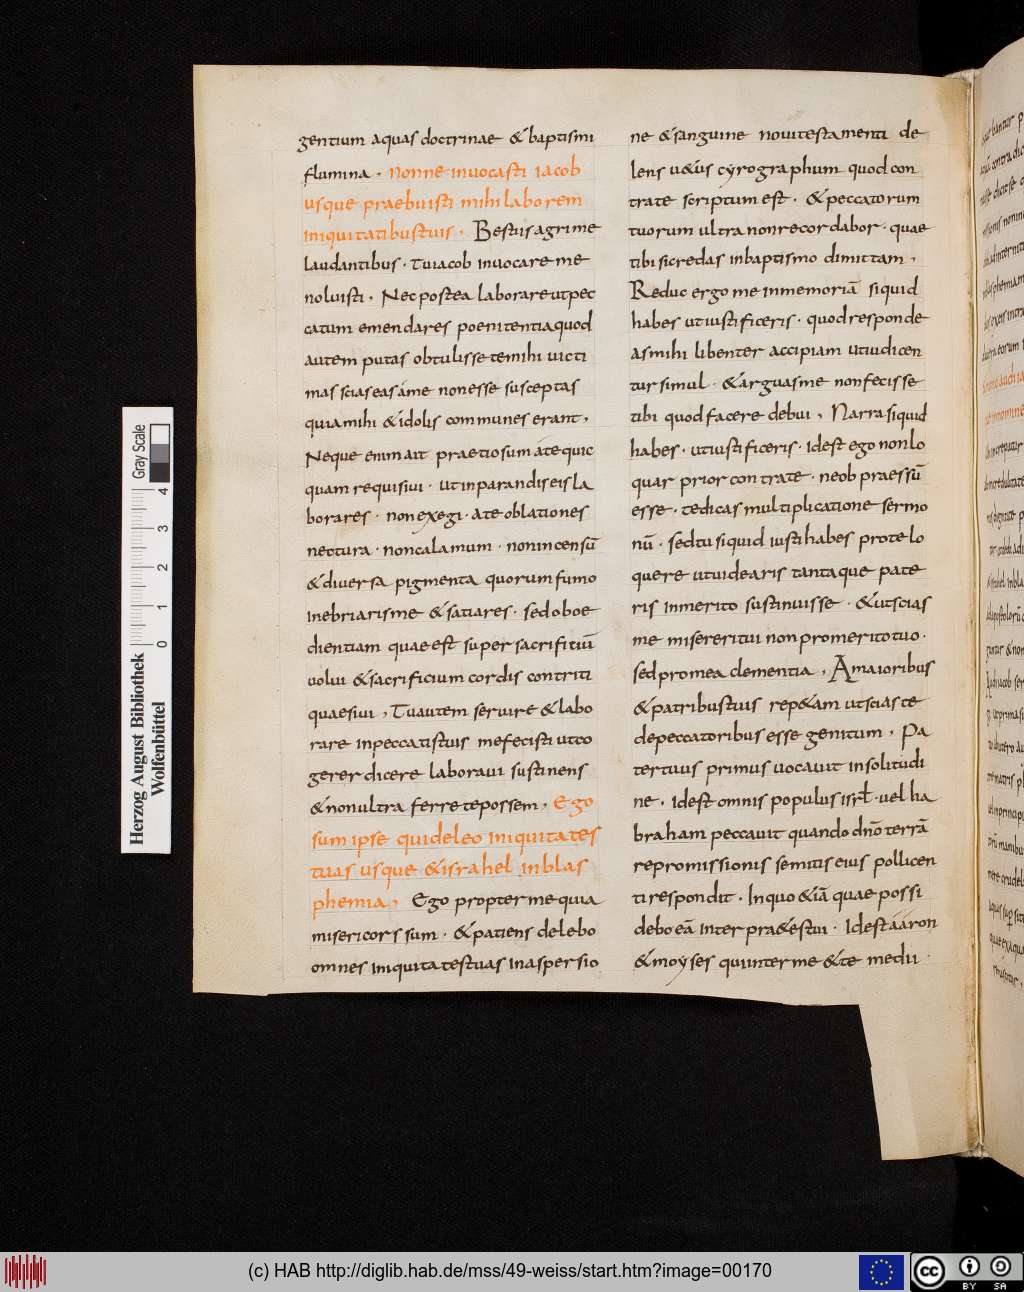 gentium aquas doctrinae & baptismi
flumina . nonne inuocasti iacob
usque praebuisti mihi laborem
iniquitatibus tuis . Bestiis agri me
laudantibus . Tu iacob inuocare me
noluisti . Nec postea laborare ut pec
catum emendares poenitentia quod
autem putas obtulisse te mihi uicti
mas scias eas ame non esse susceptas
quia mihi & idolis communes erant ,
Neque enim ait praetiosum a te quic
quam requisiui . ut in parandis eis la
borares . non exegi . a te oblationes
nec tura . non calamum . non incensū
& diuersa pigmenta quorum fumo
inebriaris me & satiares . sed oboe
dientiam quae est super sacrificiū
uolui & sacrificium cordis contriti
quaesiui , Tu autem seruire & labo
rare in peccatis tuis me fecisti ut co
gerer dicere laboraui sustinens
& non ultra ferre te possem . Ego
sum ipse qui deleo iniquitates
tuas usque & israhel in blas
phemia , Ego propter me quia
misericors sum . & patiens delebo
omnes iniquitates tuas in aspersio
ne & sanguine noui testamenti de
lens u&us cyrographum quod con
tra te scriptum est . & peccatorum
tuorum ultra non recordabor . quae
tibi si credas in baptismo dimittam ,
Reduc ergo me in memoriā si quid
habes ut iustificeris . quod responde
as mihi libenter accipiam ut iudicen
tur simul . & arguas me non fecisse
tibi quod facere debui , Narra si quid
habes . ut iustificeris . id est ego non lo
quar prior contra te . ne ob praessū
esse . te dicas multiplicatione sermo
nū . sed tu si quid iusti habes prote lo
quere ut uidearis tanta que pate
ris inmerito sustinuisse . & ut scias
me misereri tui non pro merito tuo .
sed pro mea clementia , A maioribus
& patribus tuis rep&am ut scias te
de peccatoribus esse genitum . Pa
ter tuus primus uocauit in solitudi
ne . id est omnis populus isrł . uel ha
braham peccauit quando dn̄o terrā
repromissionis semitis eius pollicen
ti respondit . In quo & iā quae possi
debo eā Interpra&es tui . Id est aaron
& moyses qui inter me & te medii .
Herzog August Bibliothek
Wolfenbüttel
0 1 2 3 4
Gray Scale
(c) HAB http://diglib.hab.de/mss/49-weiss/start.htm?image=00170
cc BY SA